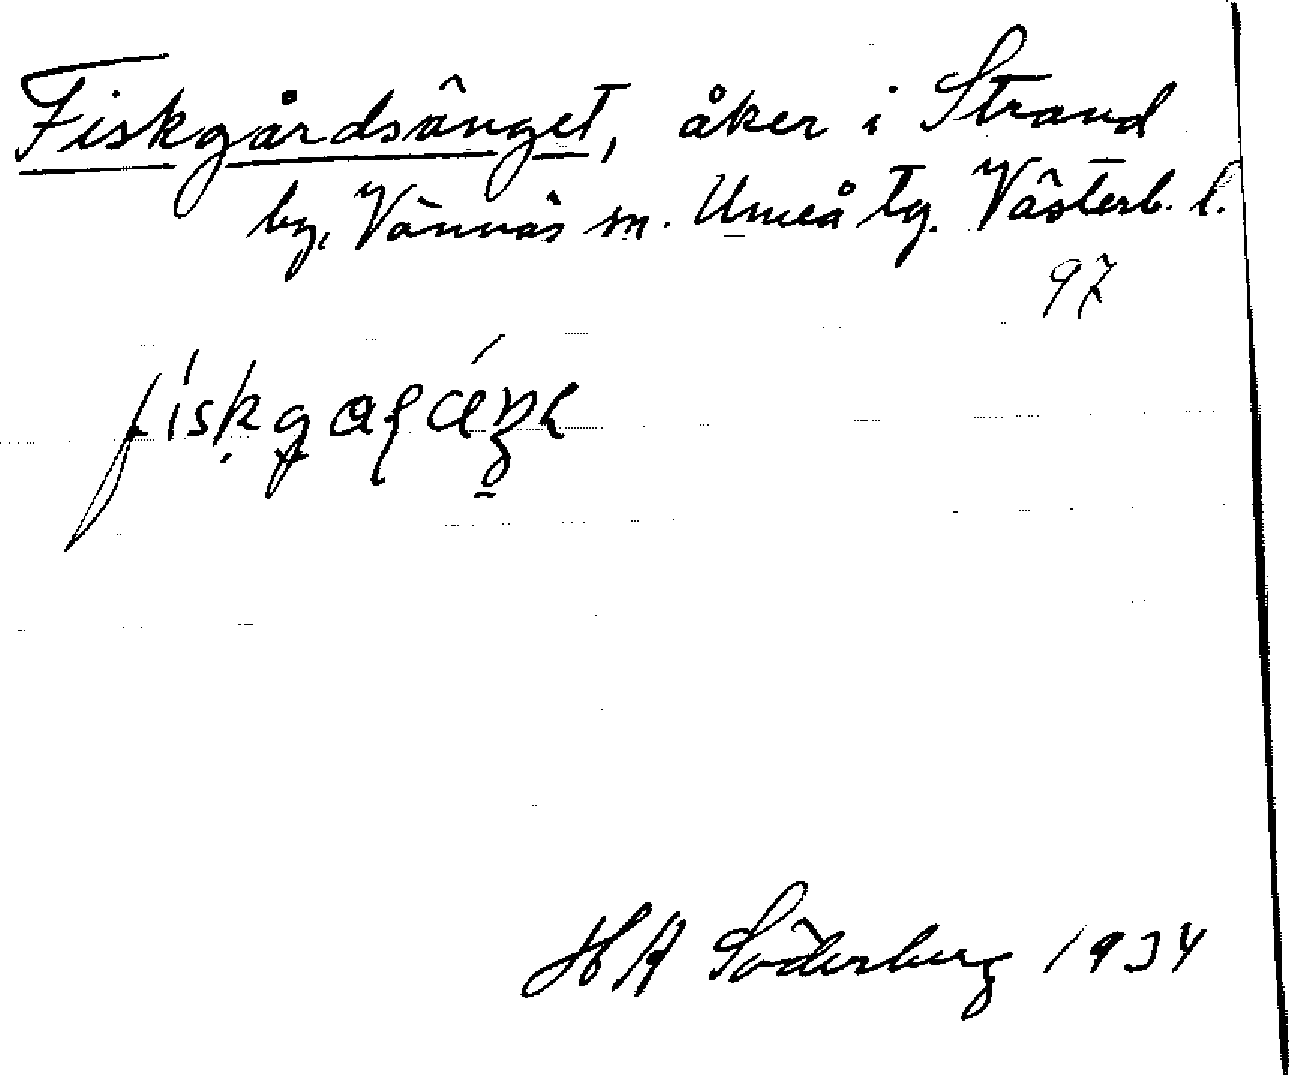 Fiskgårdsänget, åker i Strand
by, Vännäs sn. Umeå tg. Västerb. l.
97
H A Söderberg 1934